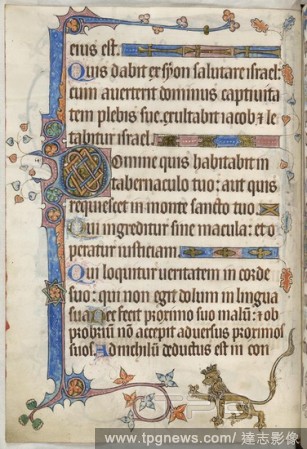 eius est.
Quis dabit ex syon salutare israel:
cum averterit dominus captivita
tem plebis sue. exultabit iacob ⁊ le
tabitur israel.
Domine quis habitabit in
tabernaculo tuo: aut quis
requiescet in monte sancto tuo.
Qui ingreditur sine macula: et o
peratur iusticiam.
Qui loquitur ueritatem in corde
suo: qui non egit dolum in lingua
sua. Nec fecit proximo suo malum: ⁊ ob
probrium non accepit adversus proximos
suos. Ad nichilum deductus est in con
www.tpgnews.com/ 達志影像